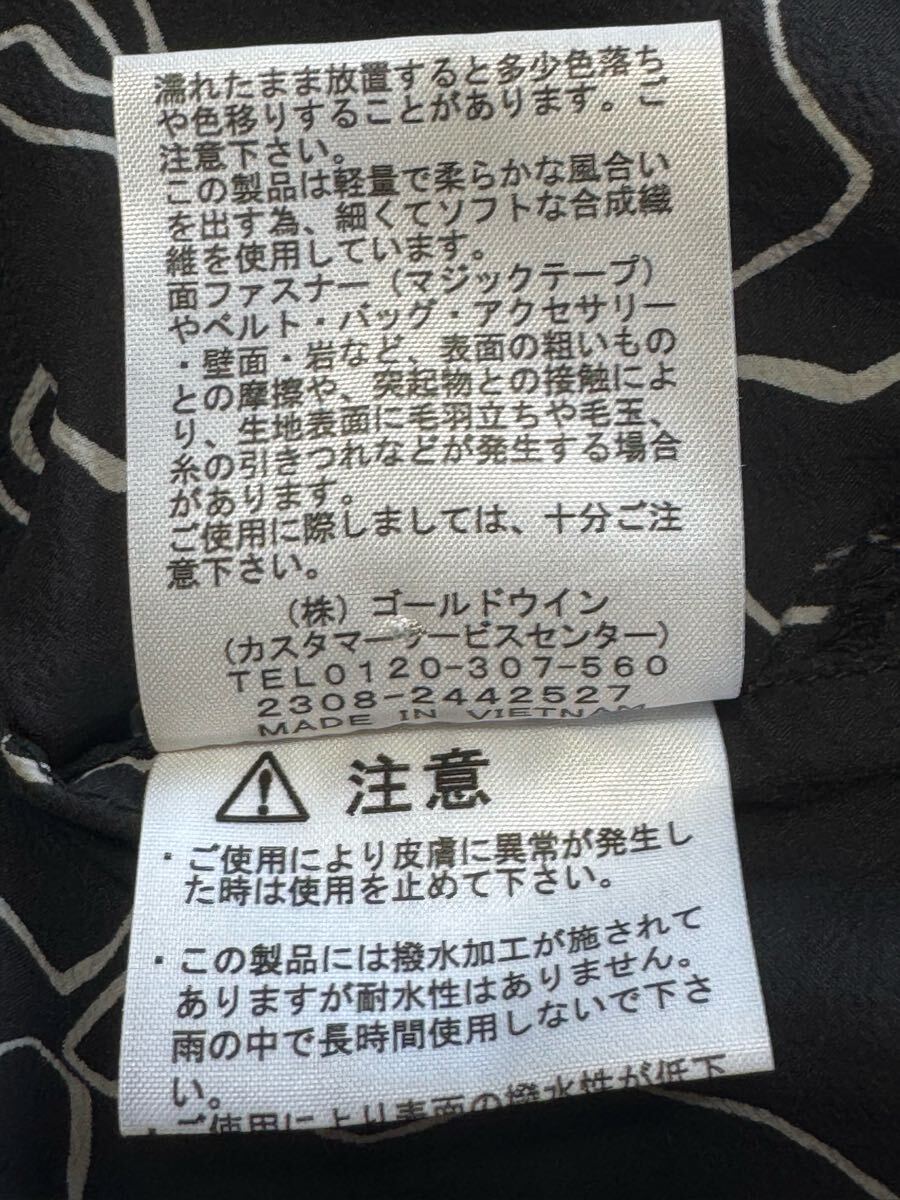 濡れたまま放置すると多少色落ち
や色移りすることがあります。ご
注意下さい。
この製品は軽量で柔らかな風合い
を出す為、細くてソフトな合成繊
維を使用しています。
面ファスナー（マジックテープ）
やベルト・バッグ・アクセサリー
・壁面・岩など、表面の粗いもの
との摩擦や、突起物との接触によ
り、生地表面に毛羽立ちや毛玉、
糸の引きつれなどが発生する場合
があります。
ご使用に際しましては、十分ご注
意下さい。
（株）ゴールドウイン
（カスタマーサービスセンター）
TEL0120-307-560
2308-2442527
MADE IN VIETNAM
注意
・ご使用により皮膚に異常が発生し
た時は使用を止めて下さい。
・この製品には撥水加工が施されて
ありますが耐水性はありません。
雨の中で長時間使用しないで下さ
い。
・ご使用により表面の撥水性が低下